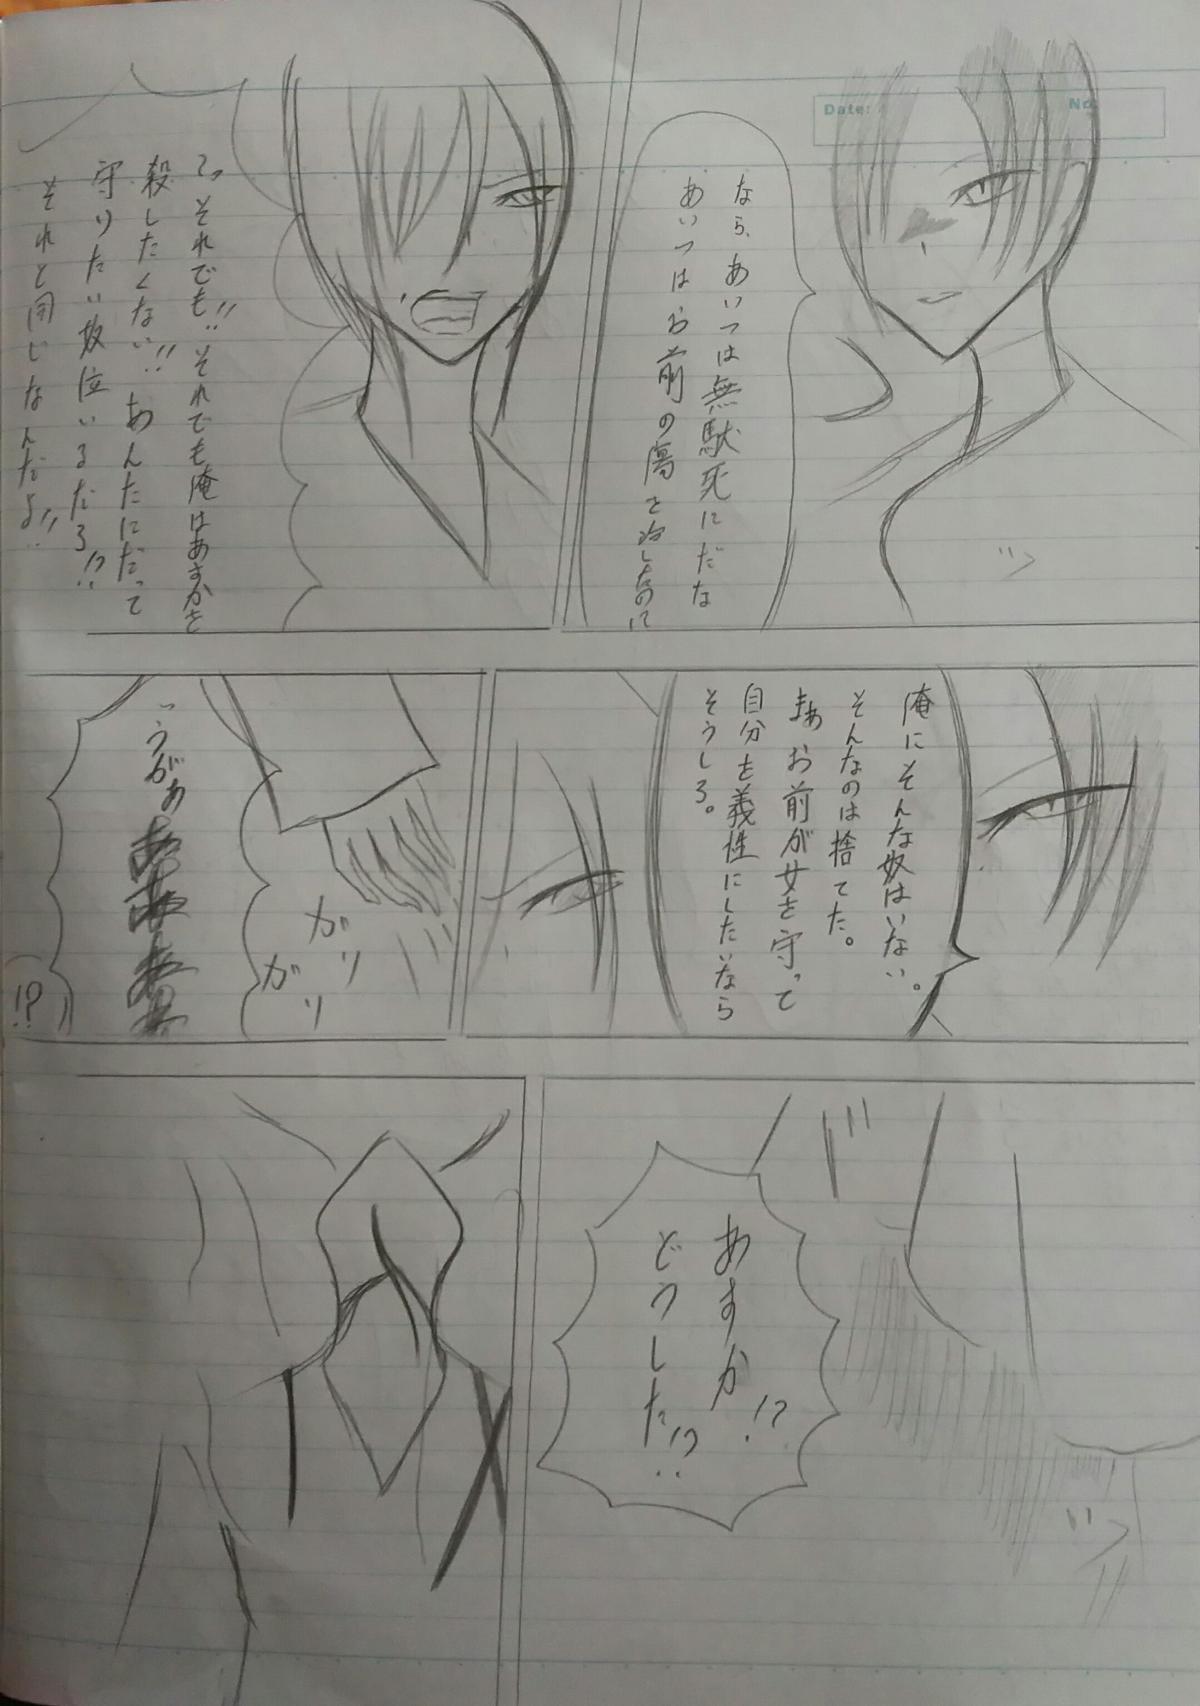 Date:
No.
なら、あいつは無駄死にだな
あいつはお前の傷を治したのに
てっそれでも!!それでも俺はあすかを
殺したくない!!あんたにだって
守りたい奴位いるだろ!?
それと同じなんだよ!!
俺にそんな奴はいない。
そんなのは捨てた。
まぁお前が女を守って
自分を義性にしたいなら
そうしろ。
ガリ
ガリ
っうがぁ
!?
あすか!?
どうした!?